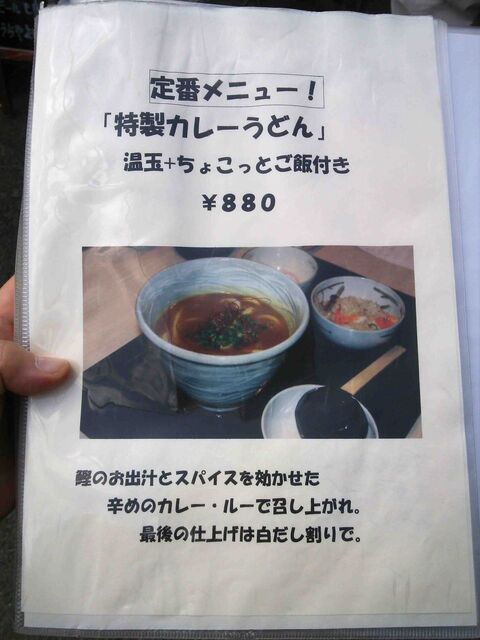 定番メニュー！
「特製カレーうどん」
温玉+ちょこっとご飯付き
￥８８０
鰹のお出汁とスパイスを効かせた
辛めのカレー・ルーで召し上がれ。
最後の仕上げは白だし割りで。